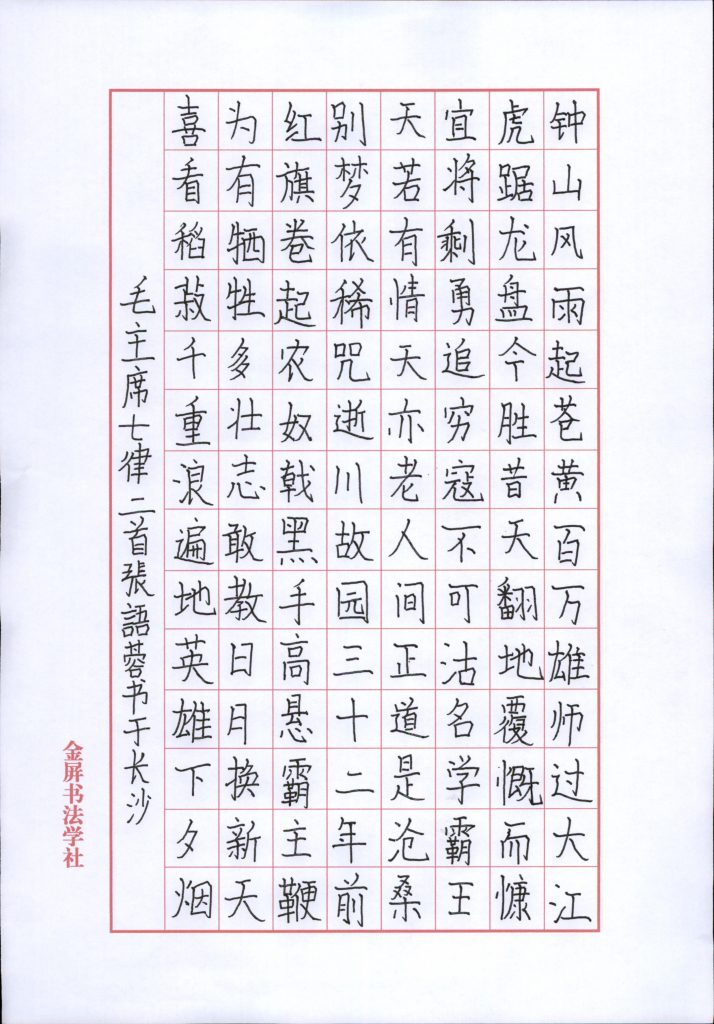 钟山风雨起苍黄百万雄师过大江
虎踞龙盘今胜昔天翻地覆慨而慷
宜将剩勇追穷寇不可沽名学霸王
天若有情天亦老人间正道是沧桑
别梦依稀咒逝川故园三十二年前
红旗卷起农奴戟黑手高悬霸主鞭
为有牺牲多壮志敢教日月换新天
喜看稻菽千重浪遍地英雄下夕烟
毛主席七律二首張語蓉书于长沙
金屏书法学社